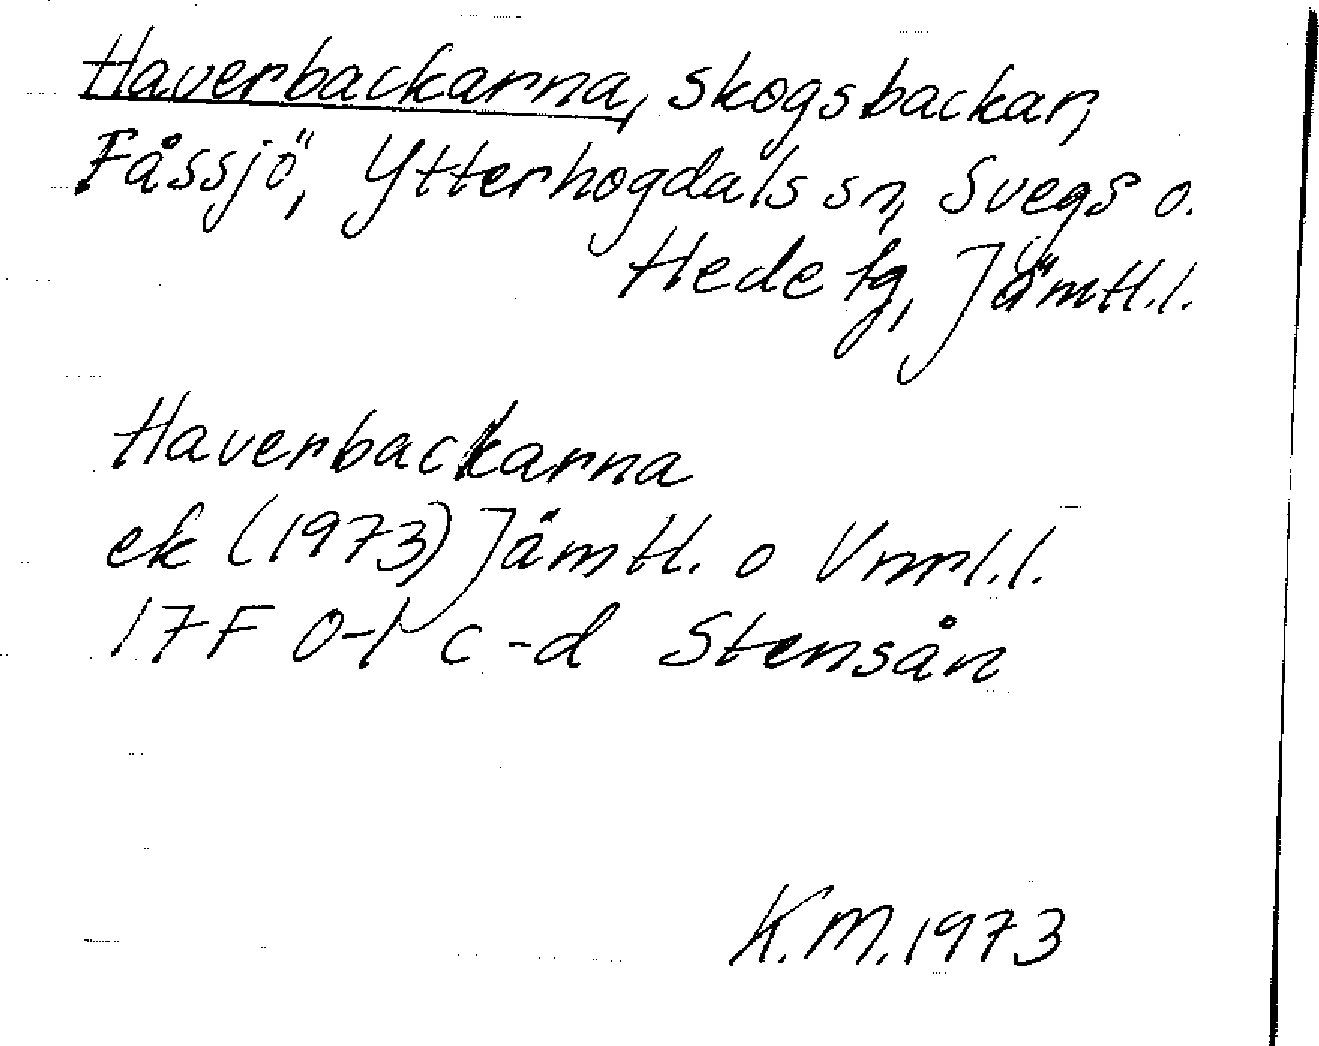 Haverbackarna, skogsbackar,
Fåssjö, Ytterhogdals sn, Svegs o.
Hede tg, Jämtl.l.
Haverbackarna
ek (1973) Jämtl. o Vnrl.l.
17F 0-1 c-d Stensån
K.M. 1973